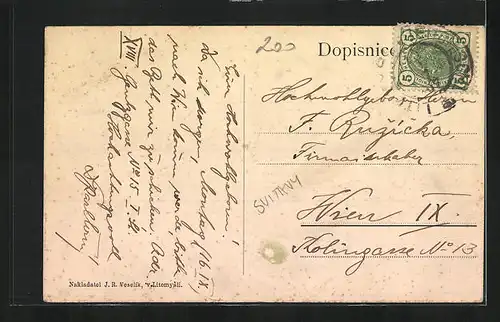 200
Dopisnice
15 15
15 15
Euer Hochwohlgeboren!
Da ich Montag (16./IX.)
nach Wien komme werde bitte
das mir zu schicken. Adr.
XVIII. gasse No 15 I. St.
Hochachtungsvoll
Hochwohlgeboren Herrn
F. Ružička
Firmainhaber
SVITAVY
Wien IX.
Kolingasse No 13
Nakladatel J. R. Veselík, v Litomyšli.